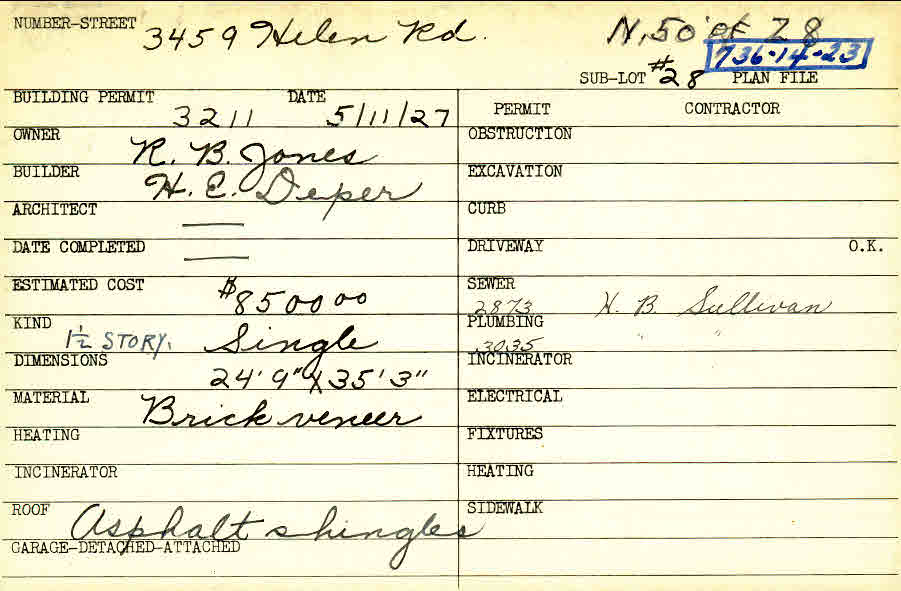 NUMBER-STREET 3459 Helen Rd. N, 50' of 28
736-14-23
SUB-LOT #28 PLAN FILE
BUILDING PERMIT 3211 DATE 5/11/27
PERMIT CONTRACTOR
OWNER R. B. Jones
OBSTRUCTION
BUILDER H. E. Deper
EXCAVATION
ARCHITECT —
CURB
DATE COMPLETED —
DRIVEWAY O.K.
ESTIMATED COST $8500 00
SEWER 2873 H. B. Sullivan
KIND 1½ STORY. Single
PLUMBING 3035 " "
DIMENSIONS 24' 9" X 35' 3"
INCINERATOR
MATERIAL Brick veneer
ELECTRICAL
HEATING
FIXTURES
INCINERATOR
HEATING
ROOF Asphalt shingles
SIDEWALK
GARAGE-DETACHED-ATTACHED